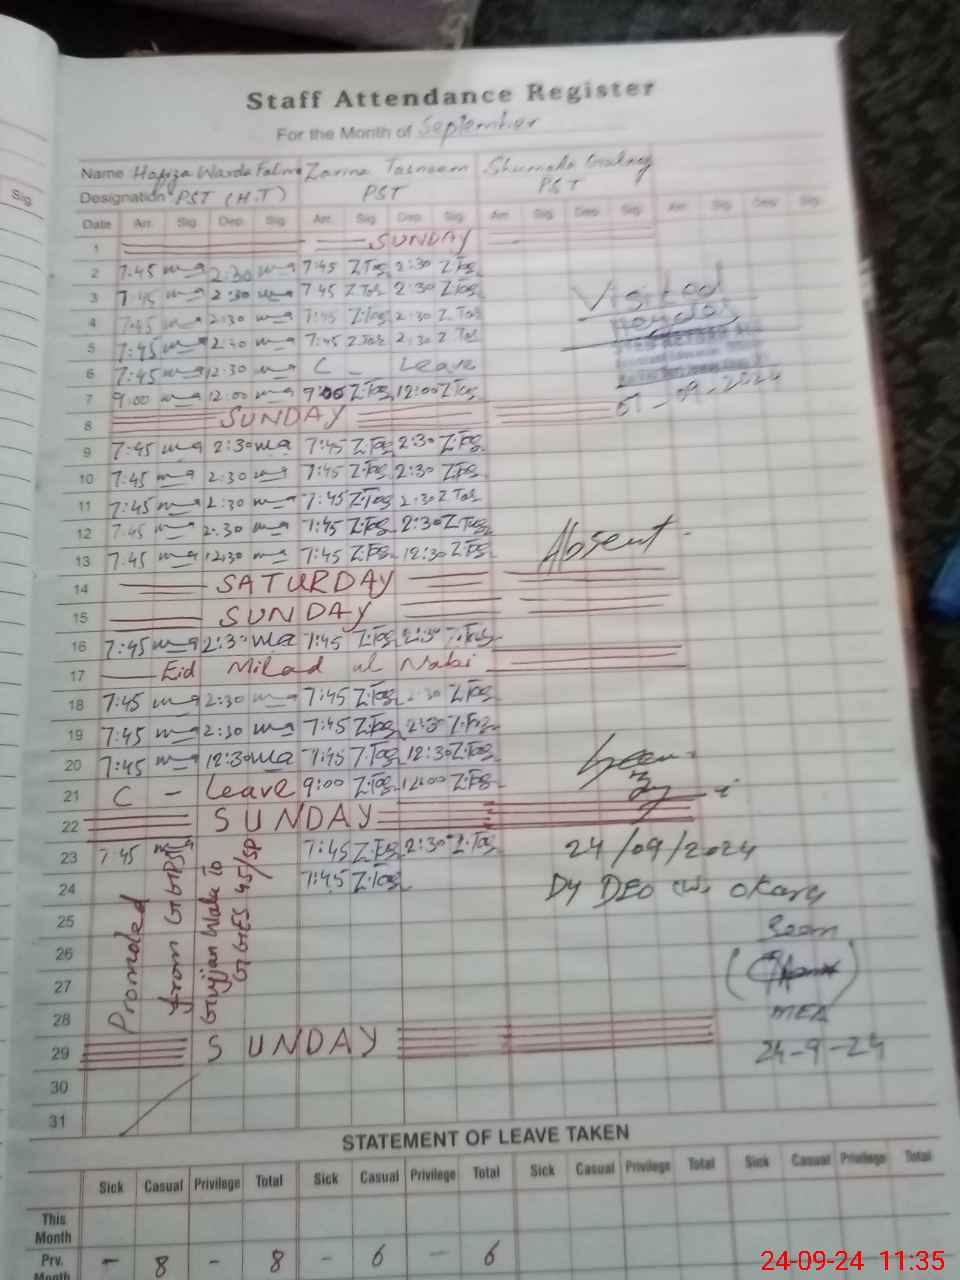 Sig
Staff Attendance Register
For the Month of September
Name Hafiza Warda Fatima Zarina Tasneem Shumaila
Designation PST (H.T) PST PST
Date Arr. Sig. Dep. Sig. Arr. Sig. Dep. Sig. Arr. Sig. Dep. Sig. Arr. Sig. Dep. Sig.
1 SUNDAY
2 7:45 2:30 7:45 Z.Tas 2:30 Z.Tas
3 7:45 2:30 7:45 Z.Tas 2:30 Z.Tas
4 7:45 2:30 7:45 Z.Tas 2:30 Z.Tas
5 7:45 2:30 7:45 Z.Tas 2:30 Z.Tas
6 7:45 12:30 C - Leave
7 9:00 12:00 9:00 Z.Tas 12:00 Z.Tas
8 SUNDAY
9 7:45 2:30 7:45 Z.Tas 2:30 Z.Tas
10 7:45 2:30 7:45 Z.Tas 2:30 Z.Tas
11 7:45 2:30 7:45 Z.Tas 2:30 Z.Tas
12 7:45 2:30 7:45 Z.Tas 2:30 Z.Tas
13 7:45 12:30 7:45 Z.Tas 12:30 Z.Tas
14 SATURDAY
15 SUNDAY
16 7:45 2:30 7:45 Z.Tas 2:30 Z.Tas
17 Eid Milad ul Nabi
18 7:45 2:30 7:45 Z.Tas 2:30 Z.Tas
19 7:45 2:30 7:45 Z.Tas 2:30 Z.Tas
20 7:45 12:30 7:45 Z.Tas 12:30 Z.Tas
21 C - Leave 9:00 Z.Tas 12:00 Z.Tas
22 SUNDAY
23 7:45 7:45 Z.Tas 2:30 Z.Tas
24 7:45 Z.Tas
25
26
27
28
29 SUNDAY
30
31
Promoted
from GGPS
Gujjan Wala to
GGES 45/SP
Visited
Absent
Seen
24/09/2024
Dy DEO (W) Okara
Seen
MEA
24-9-24
STATEMENT OF LEAVE TAKEN
Sick Casual Privilege Total Sick Casual Privilege Total Sick Casual Privilege Total Sick Casual Privilege Total
This
Month
Prv. - 8 - 8 - 6 - 6
Month
24-09-24 11:35